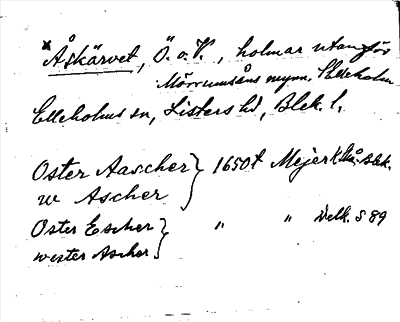 * Åskärvet, Ö. o. V., holmar utanför
Mörrumsåns mynn.,
Elleholms sn, Listers hd, Blek. l.
Oster Aascher } 1650t Mejer K. Blek.
w Ascher
Oster Escher } " " Delk. S 89
wester Ascher